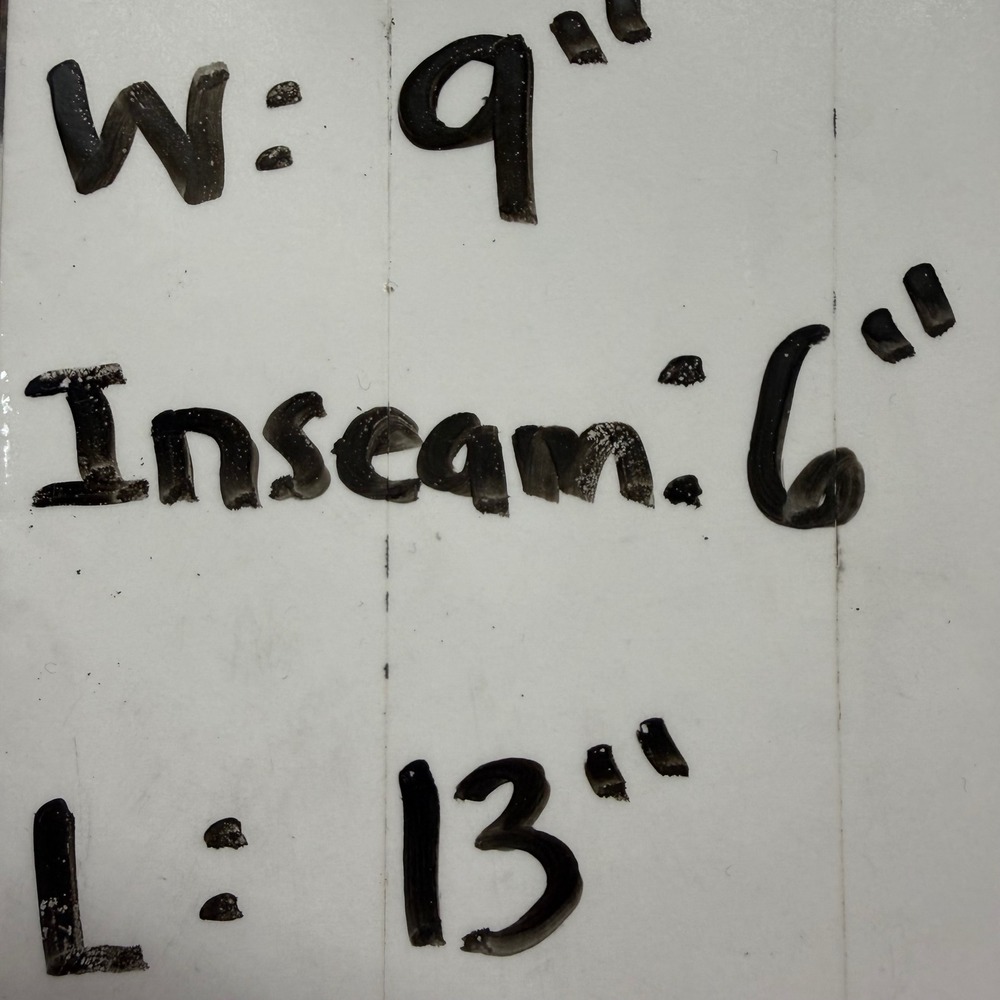 W: 9"
Inseam: 6"
L: 13"